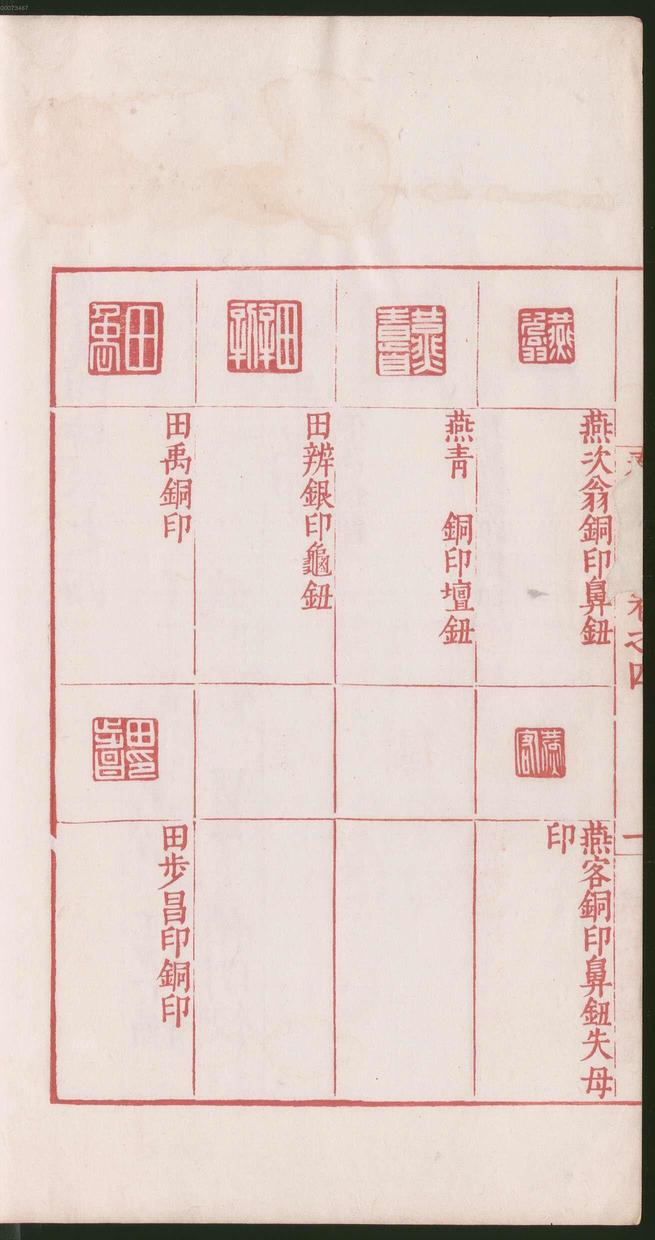 00073467
卷之四
一
燕次翁銅印鼻鈕
燕客銅印鼻鈕失母
印
燕青　銅印壇鈕
田辨銀印龜鈕
田禹銅印
田步昌印銅印